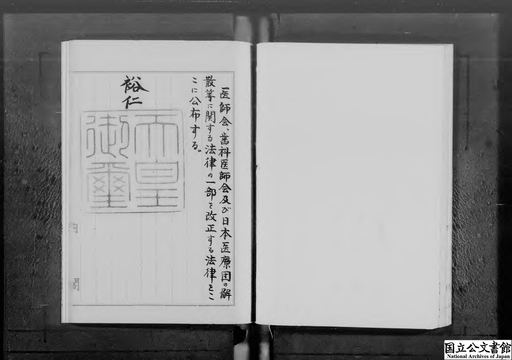 医師会、歯科医師会及び日本医療団の解
散等に関する法律の一部を改正する法律をこ
こに公布する。
裕仁
天皇
御璽
内閣
国立公文書館
National Archives of Japan